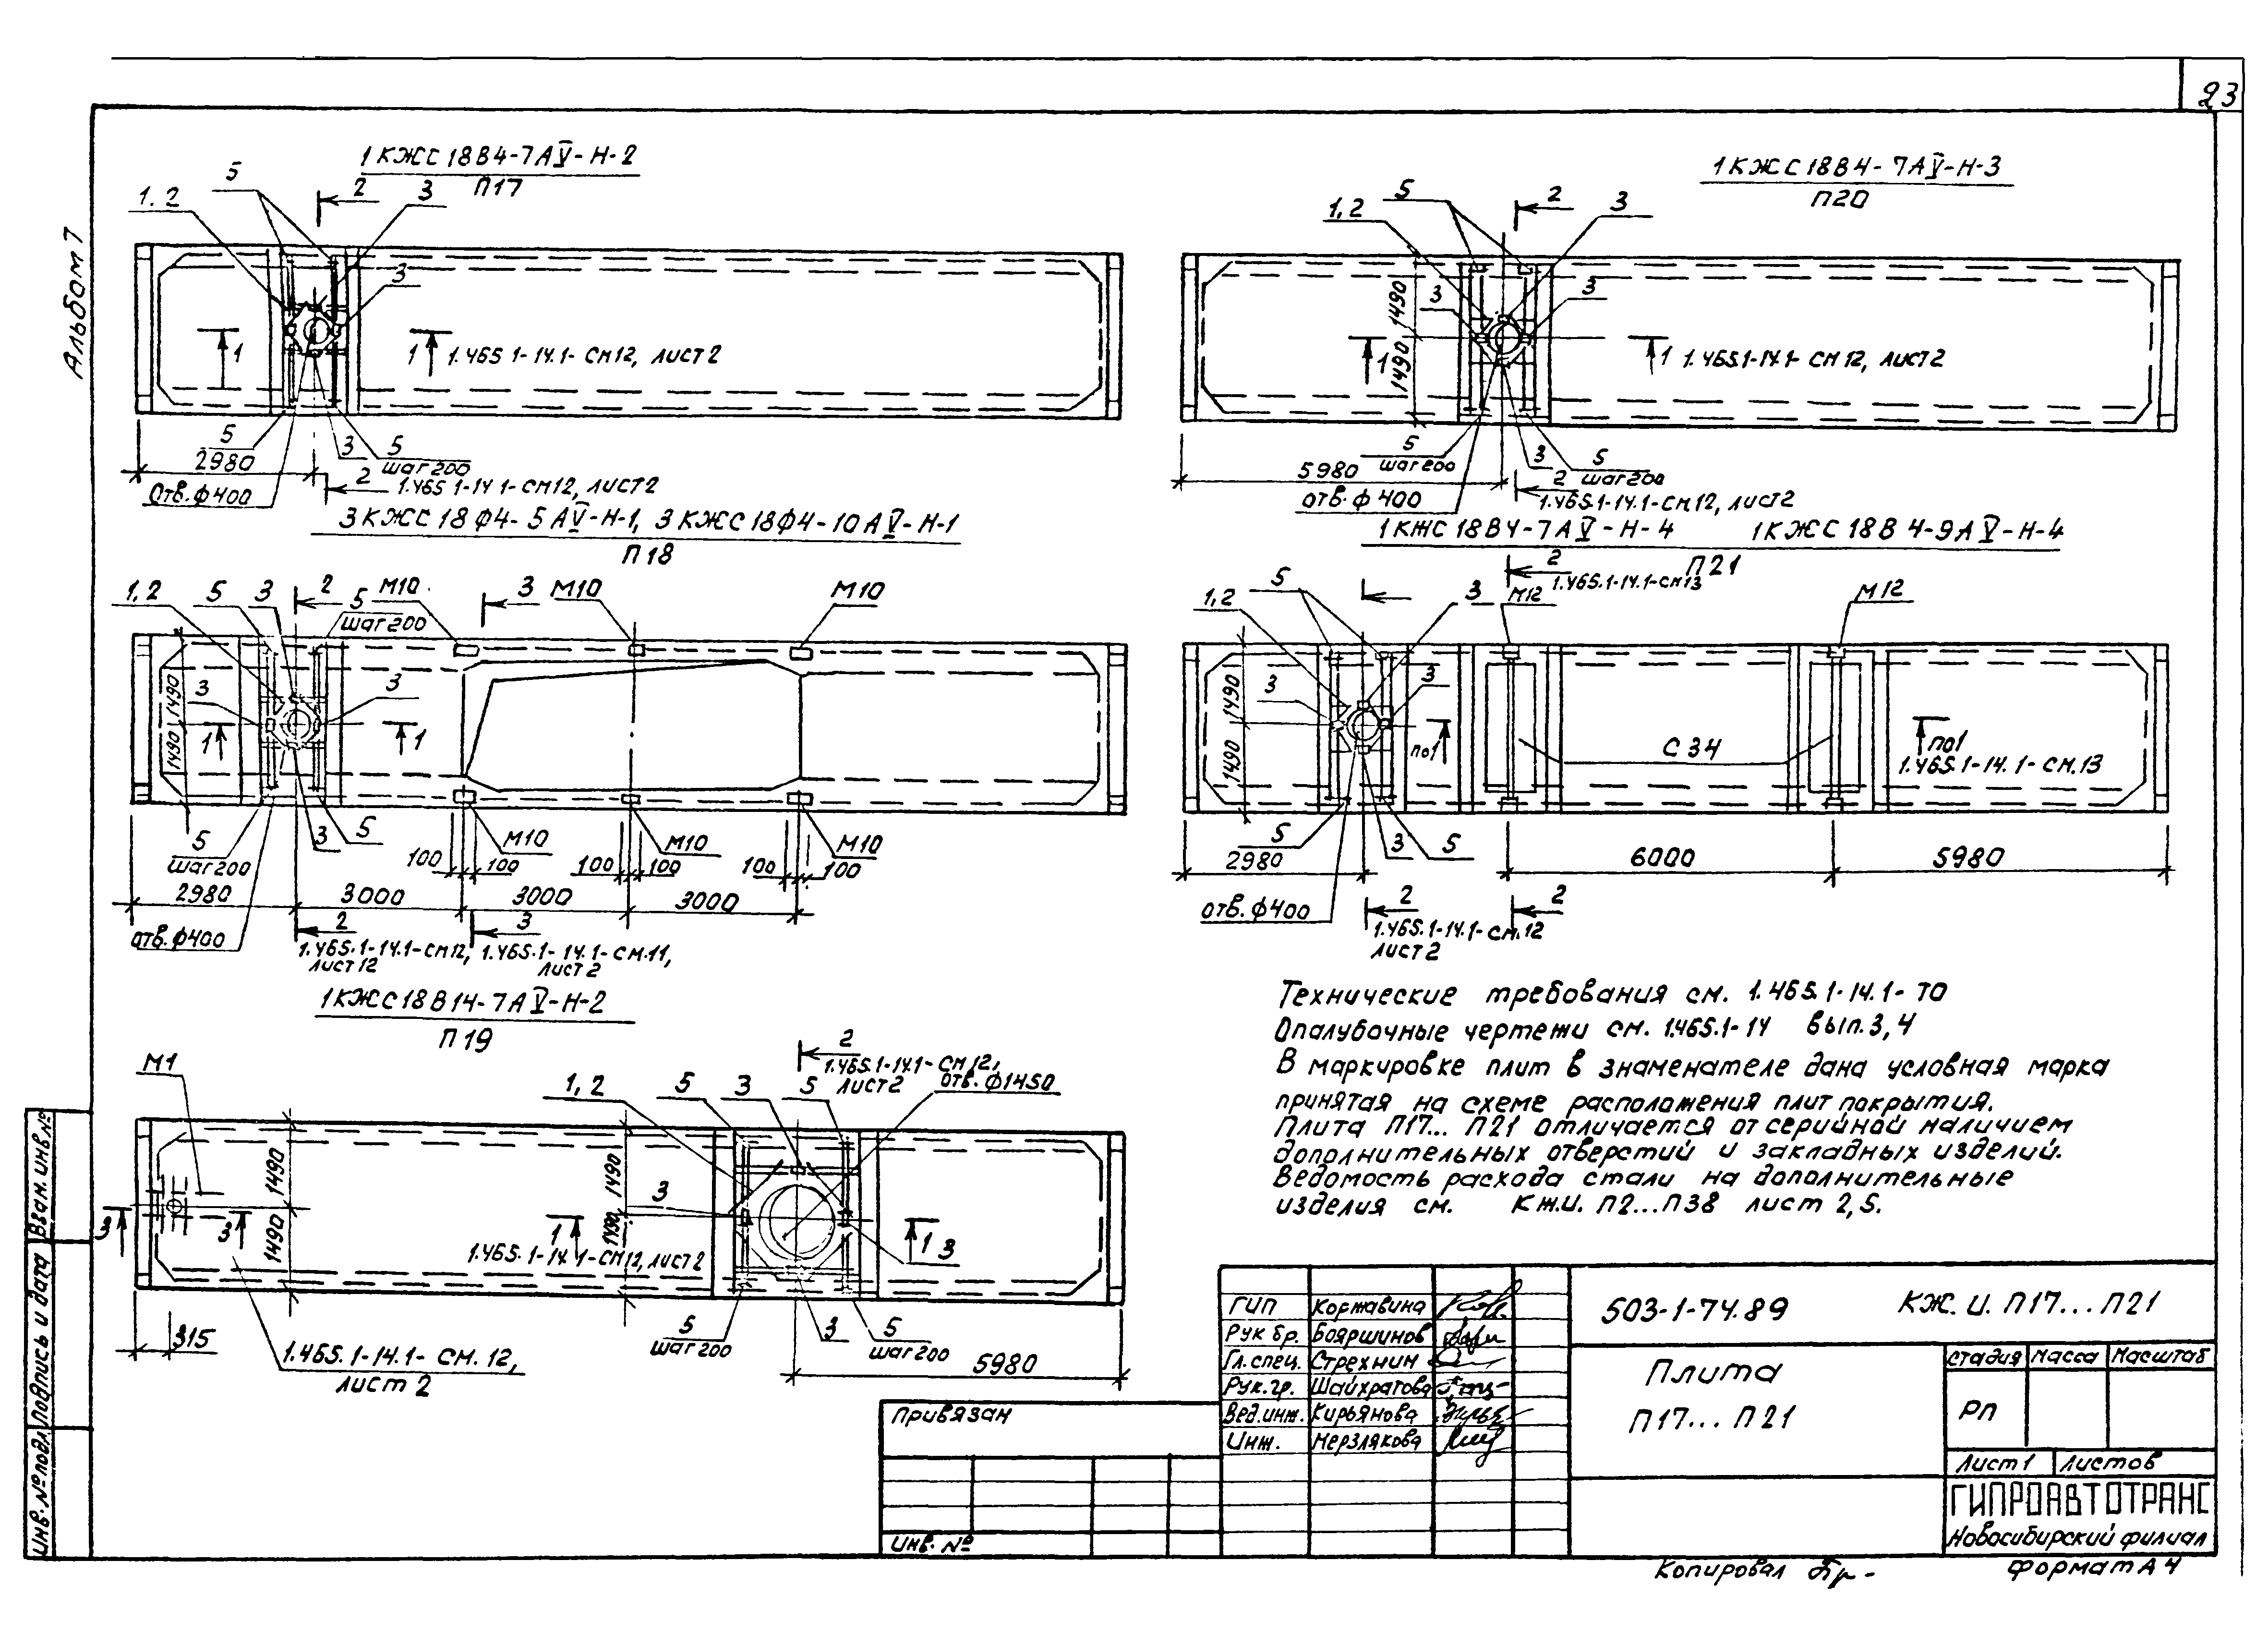 23
Альбом 7
1КЖС18В4-7АV-Н-2
П17
5
2
3
1.2
3
1
1
1.465 1-14.1-СМ12, ЛИСТ2
5
3
5
шаг200
2980
2
1.465 1-14 1-СМ12, ЛИСТ2
Отв. ф400
1КЖС18В4-7АV-Н-3
П20
5
2
3
1,2
3
3
1490
1490
1
1
1.465.1-14.1-СМ12, ЛИСТ2
5
шаг200
3
5
шаг200
5980
2
отв. ф400
1.465.1-14.1-СМ12, ЛИСТ2
3КЖС18Ф4-5АV-Н-1, 3КЖС18Ф4-10АV-Н-1
П18
1,2
5
3
2
5
шаг200
М10
3
М10
М10
3
3
1490
1490
1
1
5
шаг200
3
5
М10
М10
М10
100
100
100
100
100
100
2980
3000
3000
3000
отв. ф400
2
3
1.465.1-14.1-СМ12,
лист12
1.465.1-14.1-СМ.11,
лист2
1КЖС18В4-7АV-Н-4 1КЖС18В4-9АV-Н-4
П21
2
1.465.1-14.1-СМ13
1,2
5
3
М12
М12
3
3
1490
1490
по1
С34
по1
1.465.1-14.1-СМ.13
5
3
5
2980
6000
5980
отв. ф400
2
2
1.465.1-14.1-СМ.12
ЛИСТ2
1КЖС18В14-7АV-Н-2
П19
М1
2
1.465.1-14.1-СМ12,
лист2
отв. ф1450
1,2
5
3
5
1490
1490
1490
1490
3
3
3
1
1
3
1.465.1-14.1-СМ12, ЛИСТ2
5
шаг200
3
5
шаг200
315
5980
1.465.1-14.1-СМ.12,
лист2
Технические требования см. 1.465.1-14.1-ТО
Опалубочные чертежи см. 1.465.1-14 вып.3,4
В маркировке плит в знаменателе дана условная марка
принятая на схеме расположения плит покрытия.
Плита П17... П21 отличается от серийной наличием
дополнительных отверстий и закладных изделий.
Ведомость расхода стали на дополнительные
изделия см. КЖ.И. П2...П38 лист 2,5.
Взам. инв №
Подпись и дата
Инв. № подл
Привязан
Инв. №
ГИП Коржавина
Рук бр. Бояршинов
Гл.спец. Стрехнин
Рук.гр. Шайхратова
Вед.инж. Кирьянова
Инж. Мерзлякова
503-1-74.89 КЖ.И. П17...П21
Плита
П17... П21
Стадия Масса Масштаб
РП
Лист1 Листов
ГИПРОАВТОТРАНС
Новосибирский филиал
Копировал
Формат А4